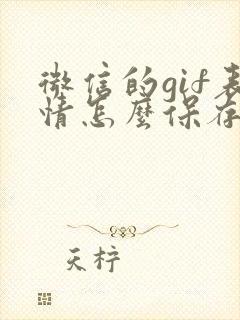 微信的gif表
情怎麼保存
天柠